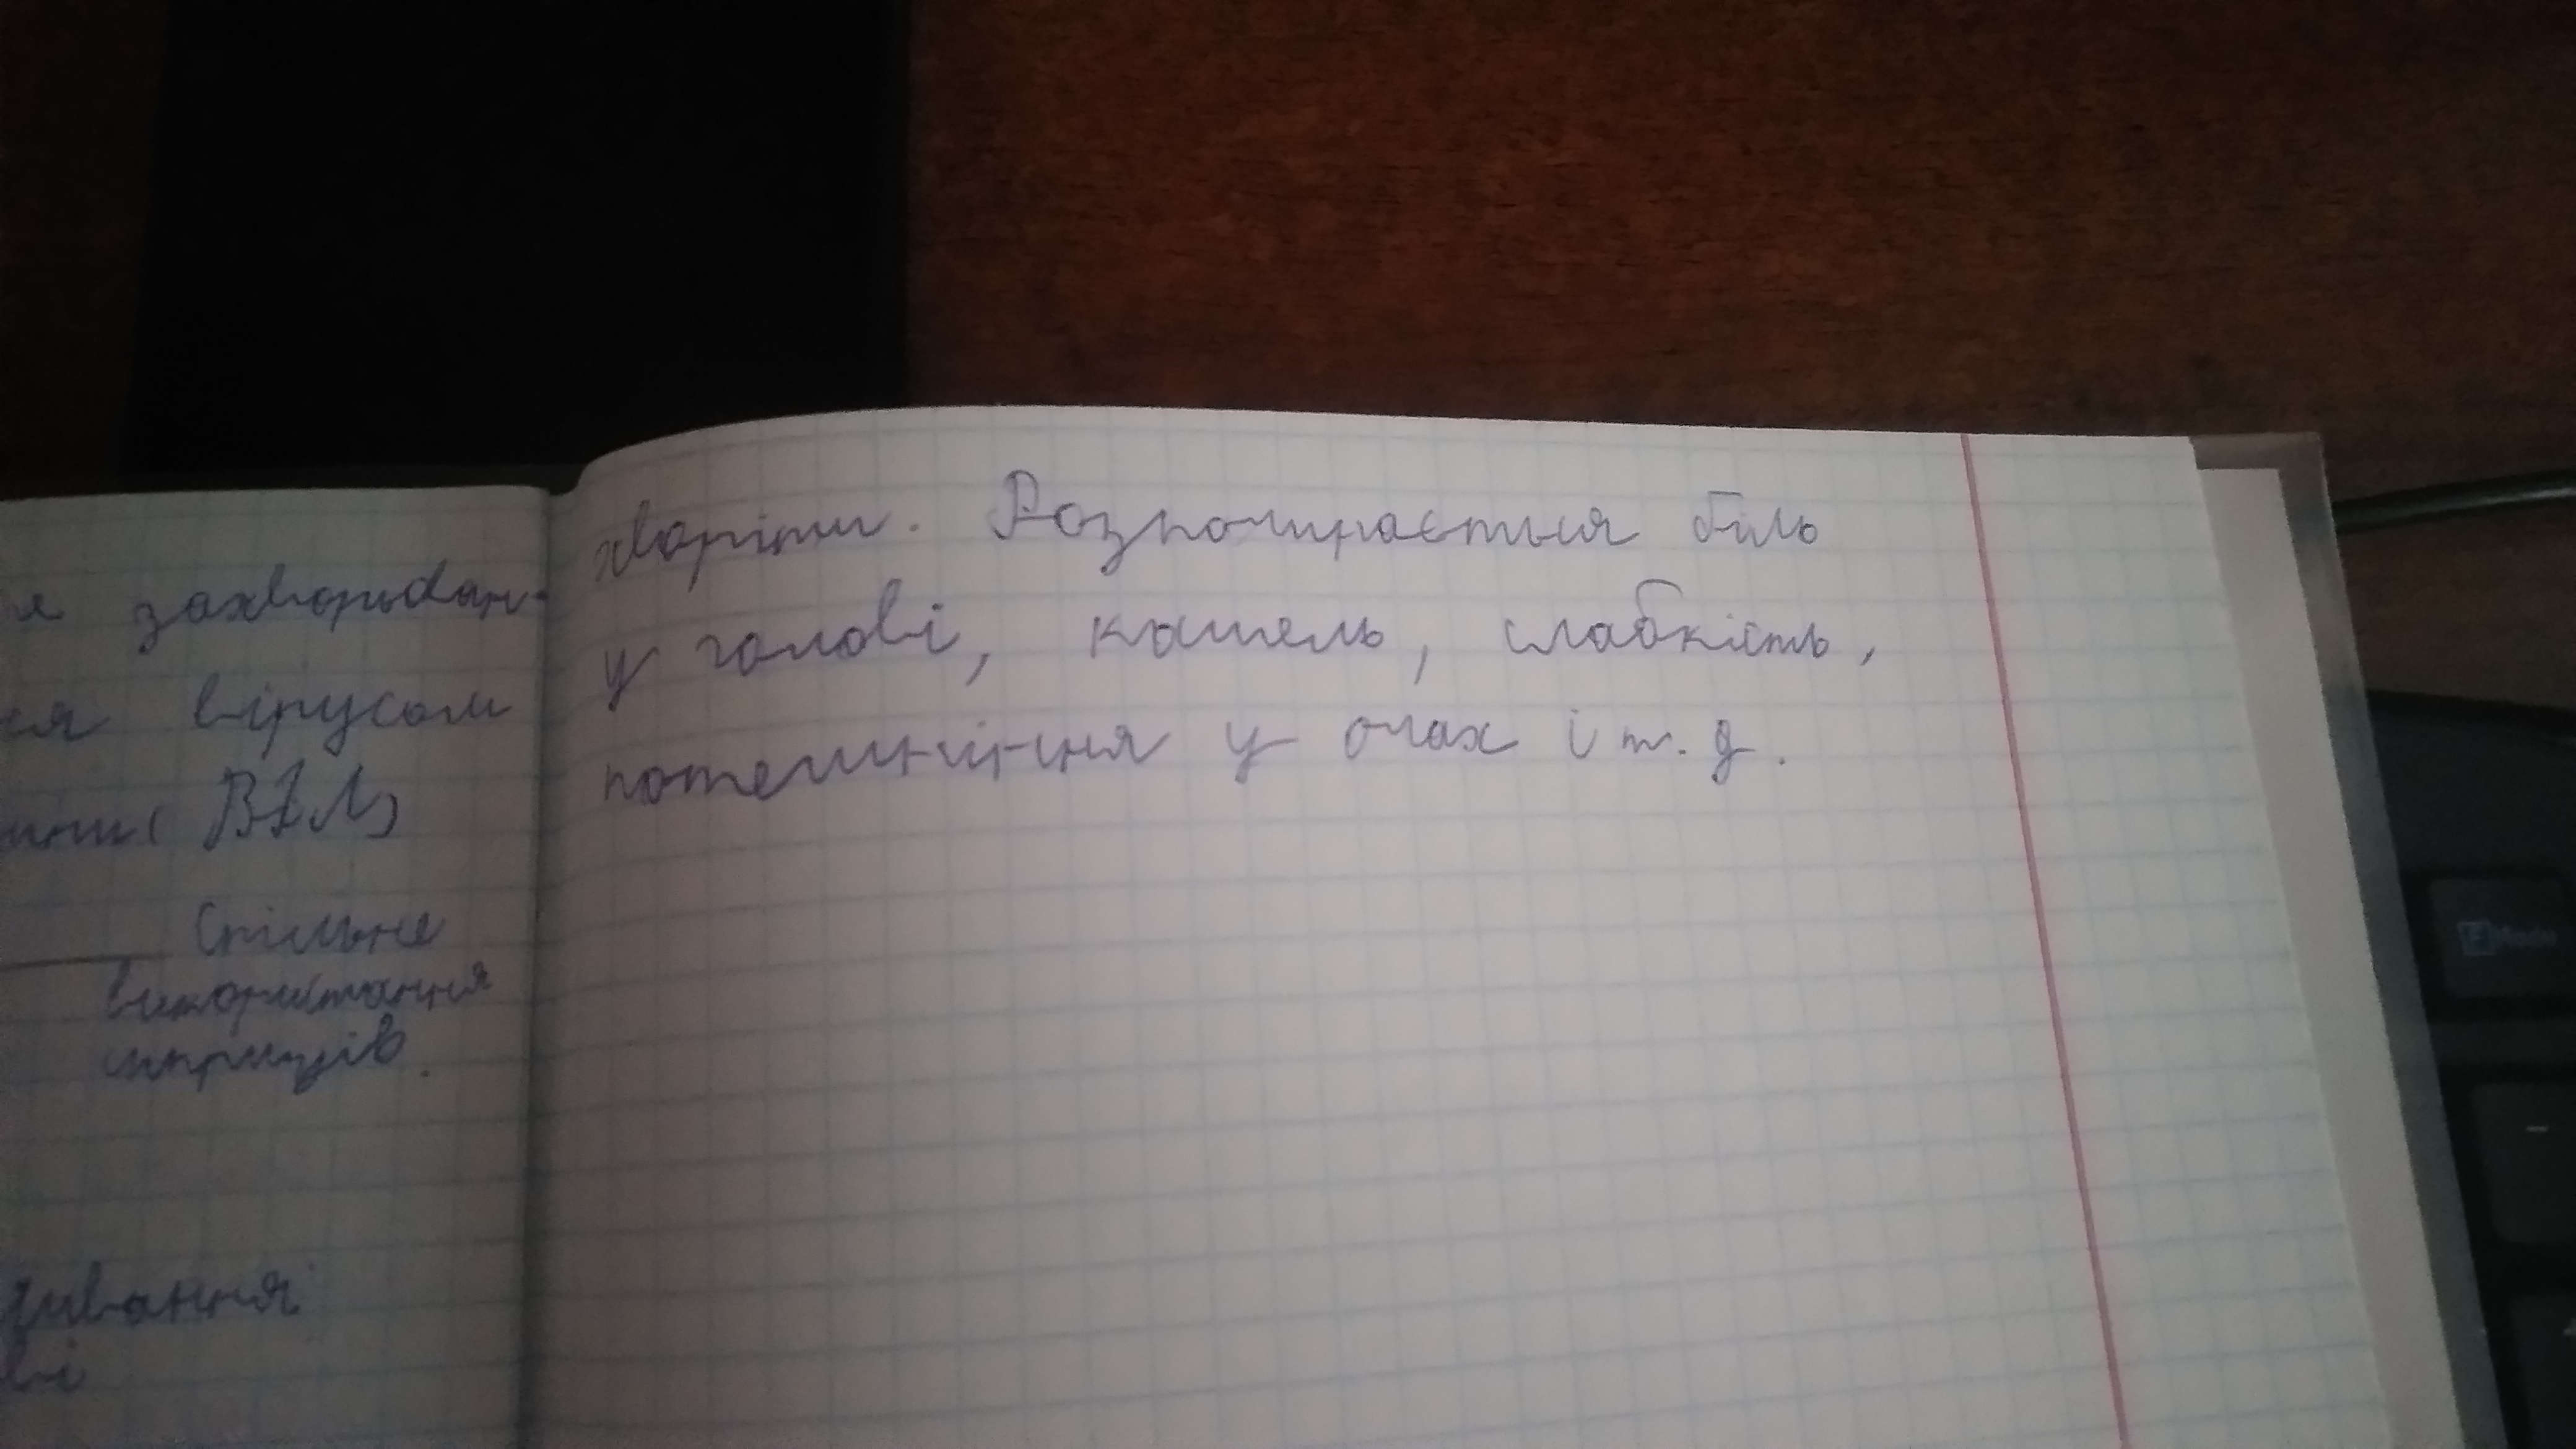 захворюван-
вірусом
ВІЛ)
Спільне
використання
шприців.
ві
хворіти. Розпочинається біль
у голові, кашель, слабкість,
потемніння у очах і т. д.
Mode